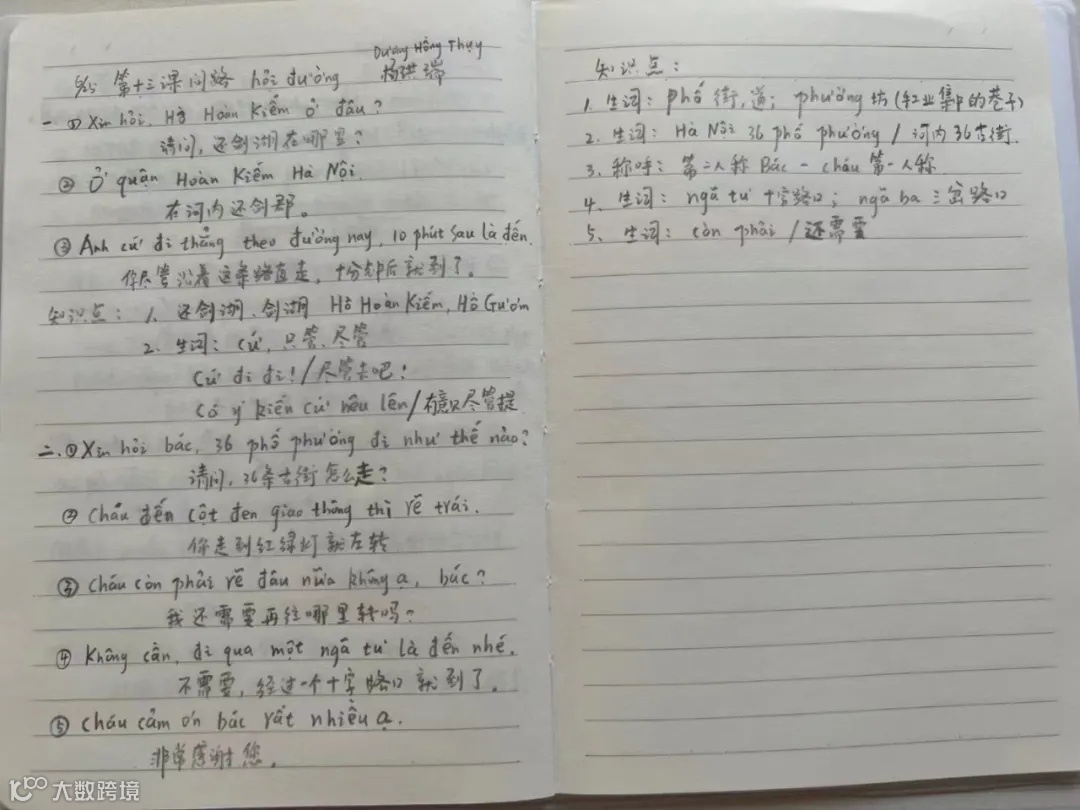 Dương Hồng Thụy
第十三课问路 hỏi đường 杨洪瑞
一 ① Xin hỏi, Hồ Hoàn Kiếm ở đâu?
请问，还剑湖在哪里？
② Ở quận Hoàn Kiếm Hà Nội.
在河内还剑郡。
③ Anh cứ đi thẳng theo đường nay, 10 phút sau là đến.
你尽管沿着这条路直走，十分钟后就到了。
知识点：1. 还剑湖、剑湖 Hồ Hoàn Kiếm, Hồ Gươm
2. 生词：cứ, 只管、尽管
Cứ đi đi! / 尽管去吧！
Có ý kiến cứ nêu lên / 有意见尽管提
二. ① Xin hỏi bác, 36 phố phường đi như thế nào?
请问，36条古街怎么走？
② Cháu đến cột đen giao thông thì rẽ trái.
你走到红绿灯就左转
③ Cháu còn phải rẽ đâu nữa không ạ, bác?
我还需要再往哪里转吗？
④ Không cần, đi qua một ngã tư là đến nhé.
不需要，经过一个十字路口就到了。
⑤ Cháu cảm ơn bác rất nhiều ạ.
非常感谢您。
知识点：
1. 生词：phố 街，道；phường 坊(手工业集中的巷子)
2. 生词：Hà Nội 36 phố phường / 河内36古街.
3. 称呼：第二人称 Bác - cháu 第一人称
4. 生词：ngã tư 十字路口；ngã ba 三岔路口
5. 生词：còn phải / 还需要
大数跨境